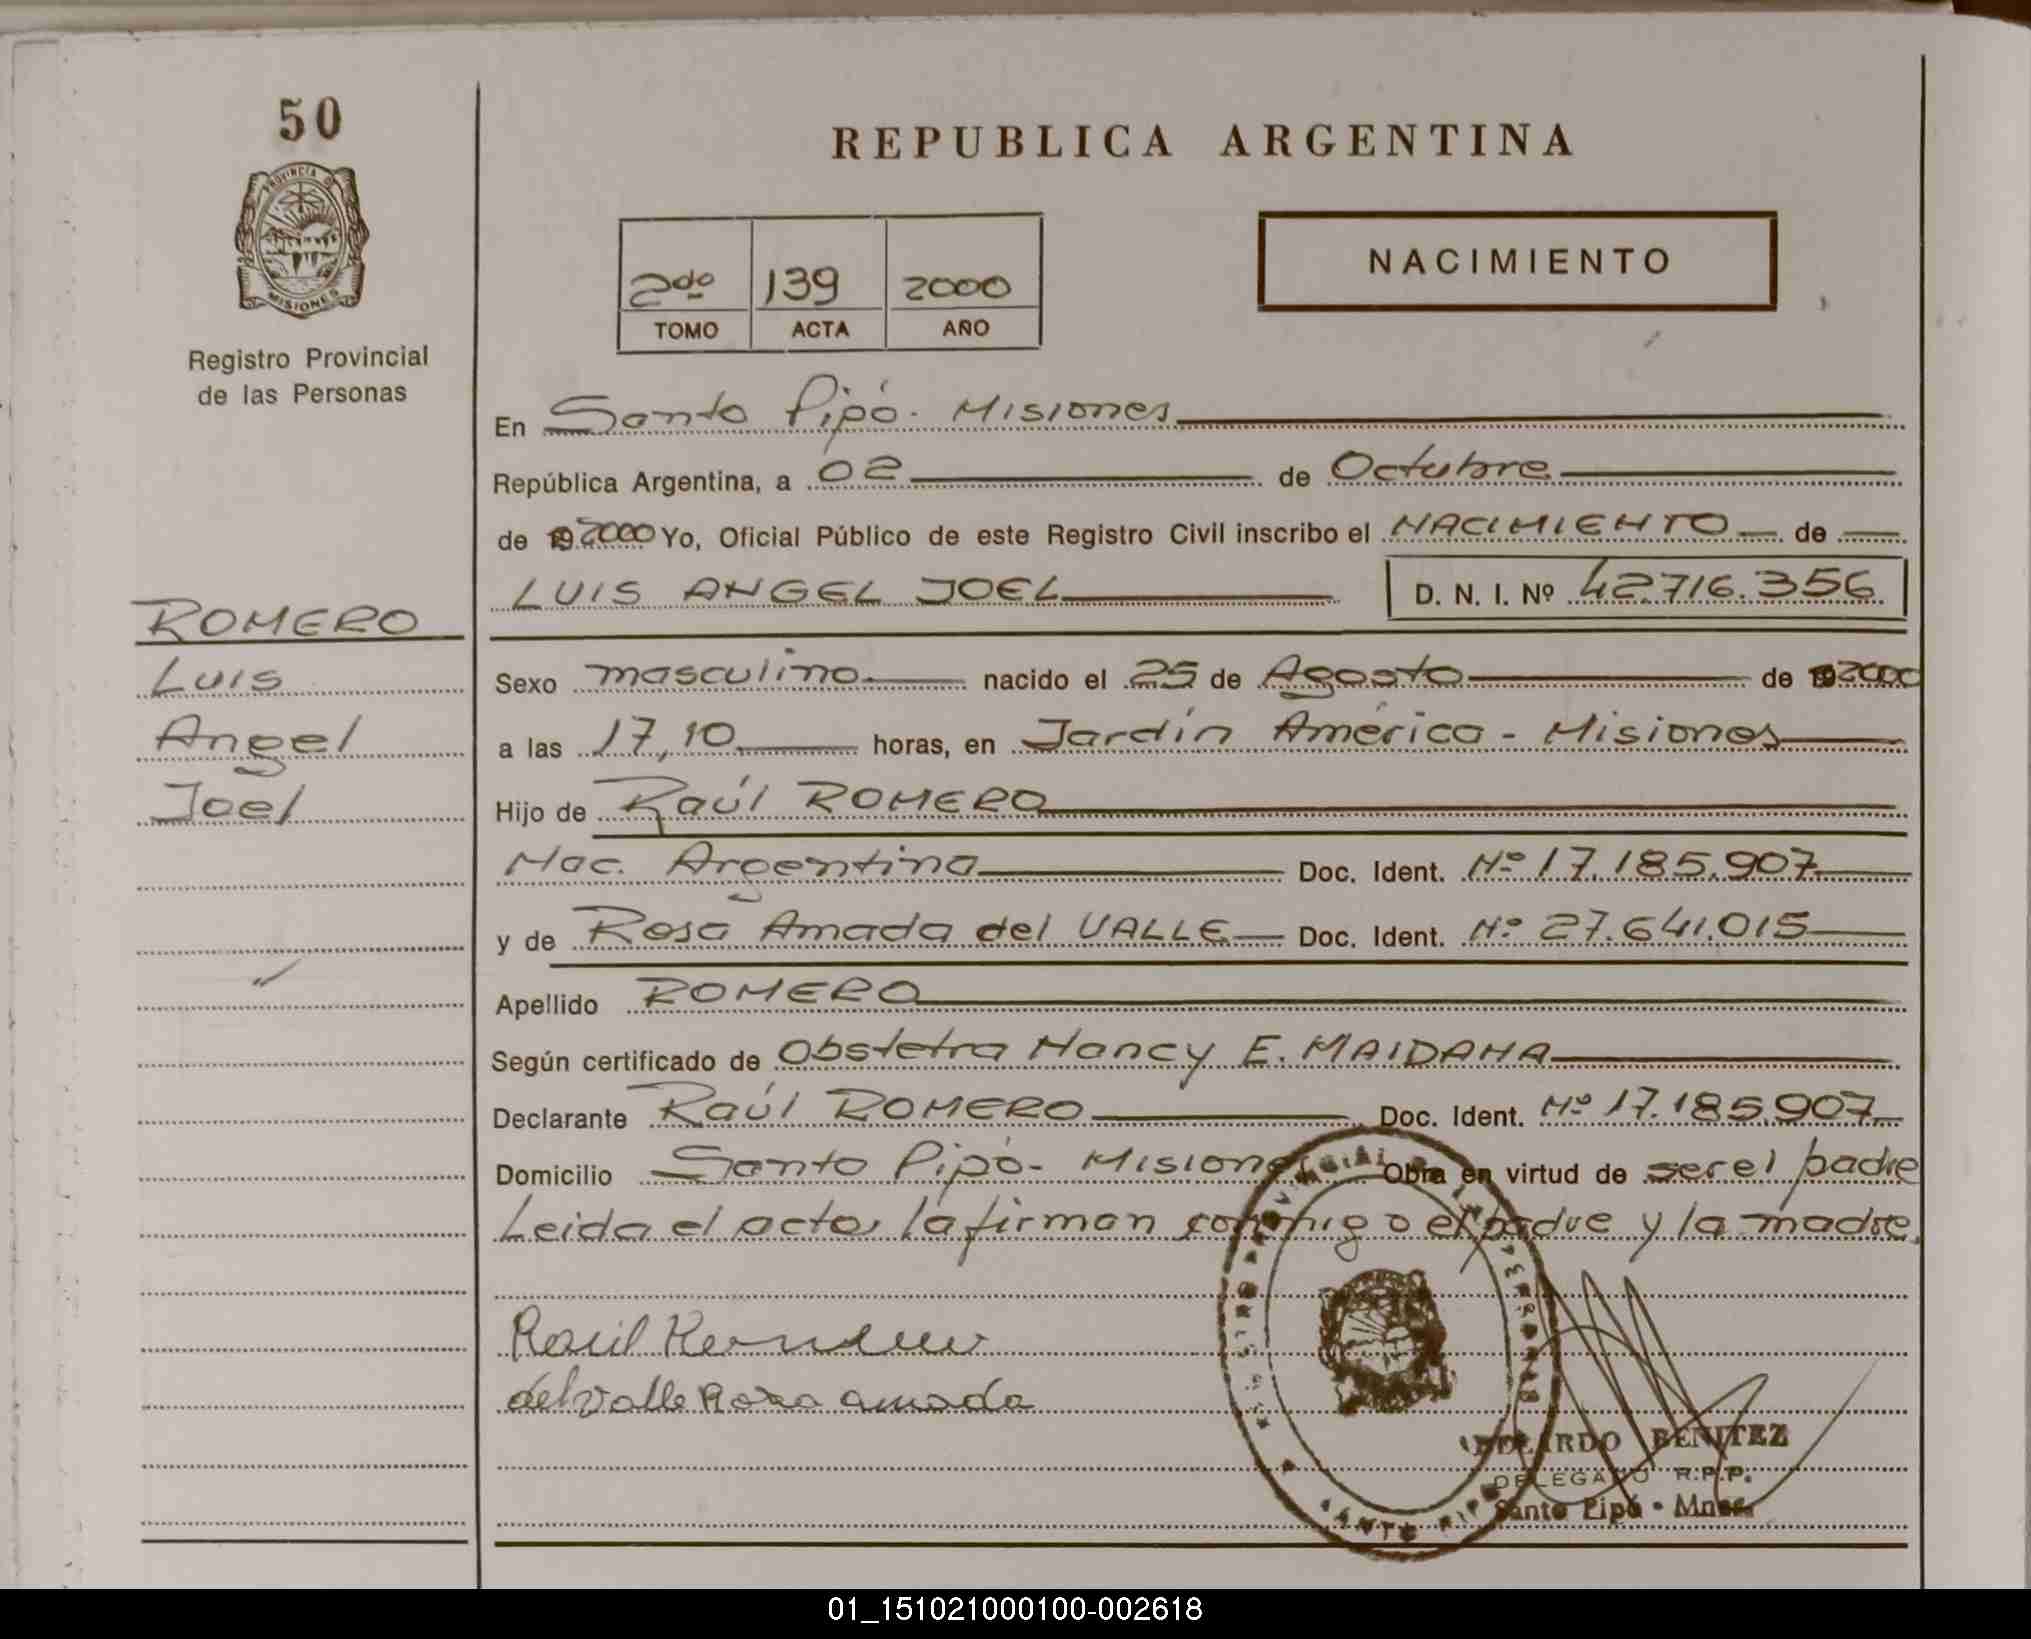 50
PROVINCIA DE
MISIONES
Registro Provincial
de las Personas
REPUBLICA ARGENTINA
2do 139 2000
TOMO ACTA AÑO
NACIMIENTO
En Santo Pipó. Misiones
República Argentina, a 02 de Octubre
de 2000 Yo, Oficial Público de este Registro Civil inscribo el NACIMIENTO de
LUIS ANGEL JOEL D. N. I. Nº 42.716.356
ROMERO
Luis
Angel
Joel
Sexo masculino nacido el 25 de Agosto de 2000
a las 17,10 horas, en Jardín América - Misiones
Hijo de Raúl ROMERO
Nac. Argentina Doc. Ident. Nº 17.185.907
y de Rosa Amada del VALLE Doc. Ident. Nº 27.641.015
Apellido ROMERO
Según certificado de Obstetra Nancy E. MAIDANA
Declarante Raúl ROMERO Doc. Ident. Nº 17.185.907
Domicilio Santo Pipó - Misiones Obra en virtud de ser el padre
Leida el acta, la firman conmigo el padre y la madre.
Raúl
del Valle Rosa amada
EDUARDO BENITEZ
DELEGADO R.P.P.
Santo Pipó - Mnes.
SANTO PIPO
01_151021000100-002618